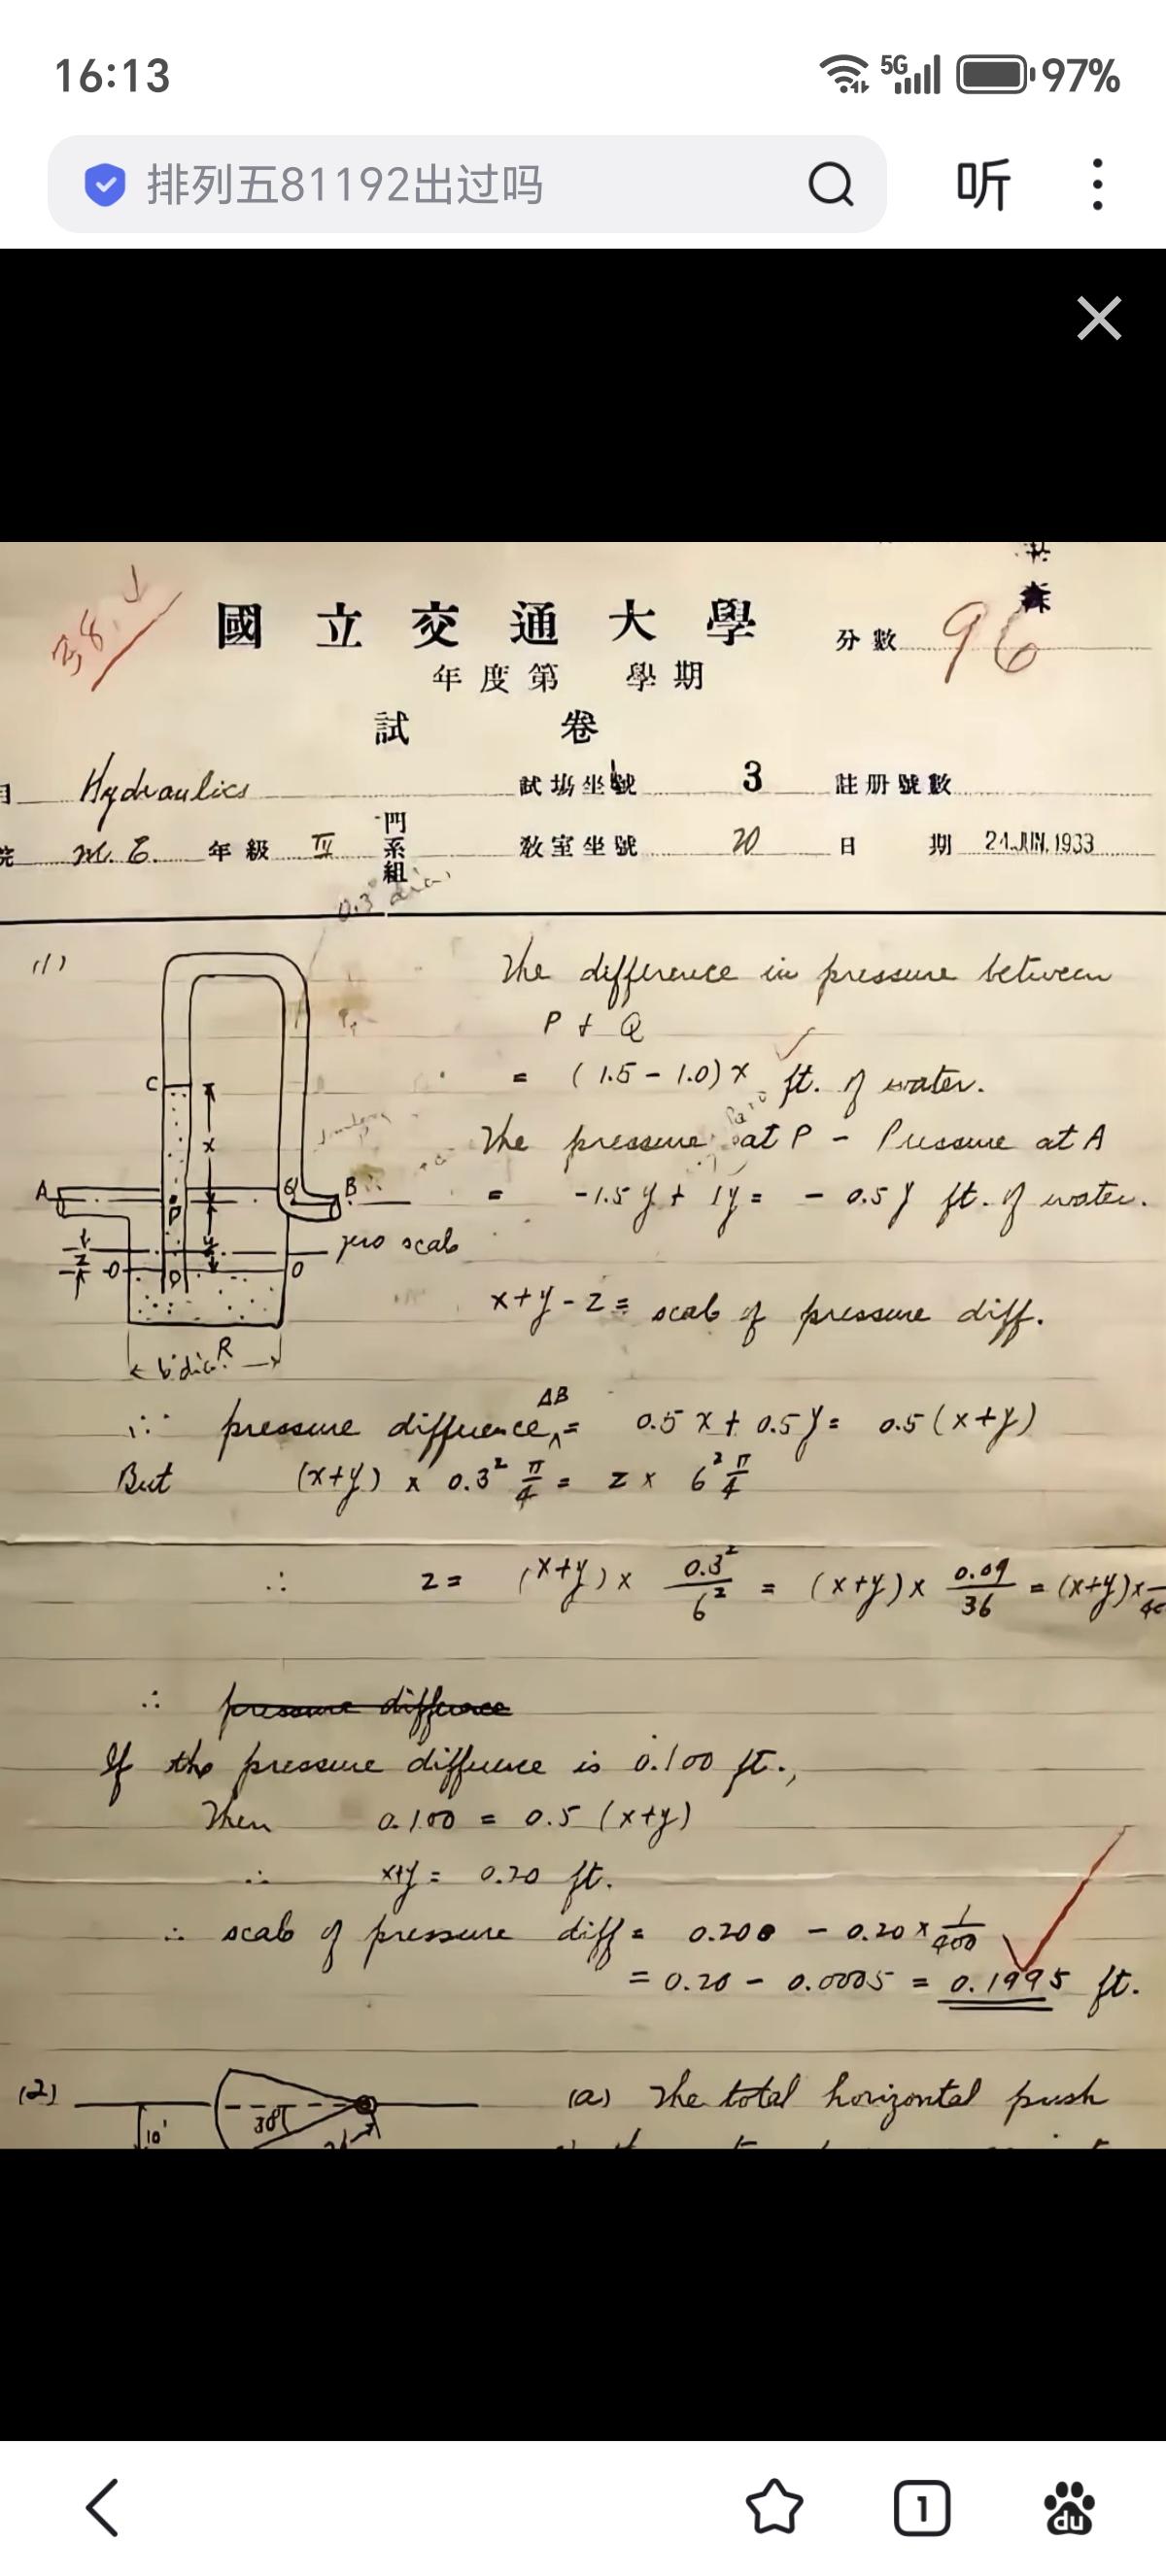 16:13
5G
97%
排列五81192出过吗
听
森
38.
國立交通大學
分數 96
年度第 學期
試 卷
Hydraulics
試塲坐號 3
註册號數
M.E. 年級 III 門系組
教室坐號 20
日 期 24.JUN.1933
0.3" dia.
(1)
The difference in pressure between
P + Q
= (1.5 - 1.0) x ft. of water.
C
x
The pressure at P - Pressure at A
A
Q
B
P
= -1.5y + 1y = - 0.5y ft. of water.
y
zero scale
z
O
D
O
x+y-z = scale of pressure diff.
R
6" dia.
∴ pressure difference AB = 0.5x + 0.5y = 0.5(x+y)
But (x+y) x 0.3² π/4 = z x 6² π/4
∴ z = (x+y) x 0.3²/6² = (x+y) x 0.09/36 = (x+y) x
∴ pressure difference
If the pressure difference is 0.100 ft.,
Then 0.100 = 0.5 (x+y)
∴ x+y = 0.20 ft.
∴ scale of pressure diff = 0.200 - 0.20 x 1/400
= 0.20 - 0.0005 = 0.1995 ft.
(2)
30°
10'
(a) The total horizontal push
1
du